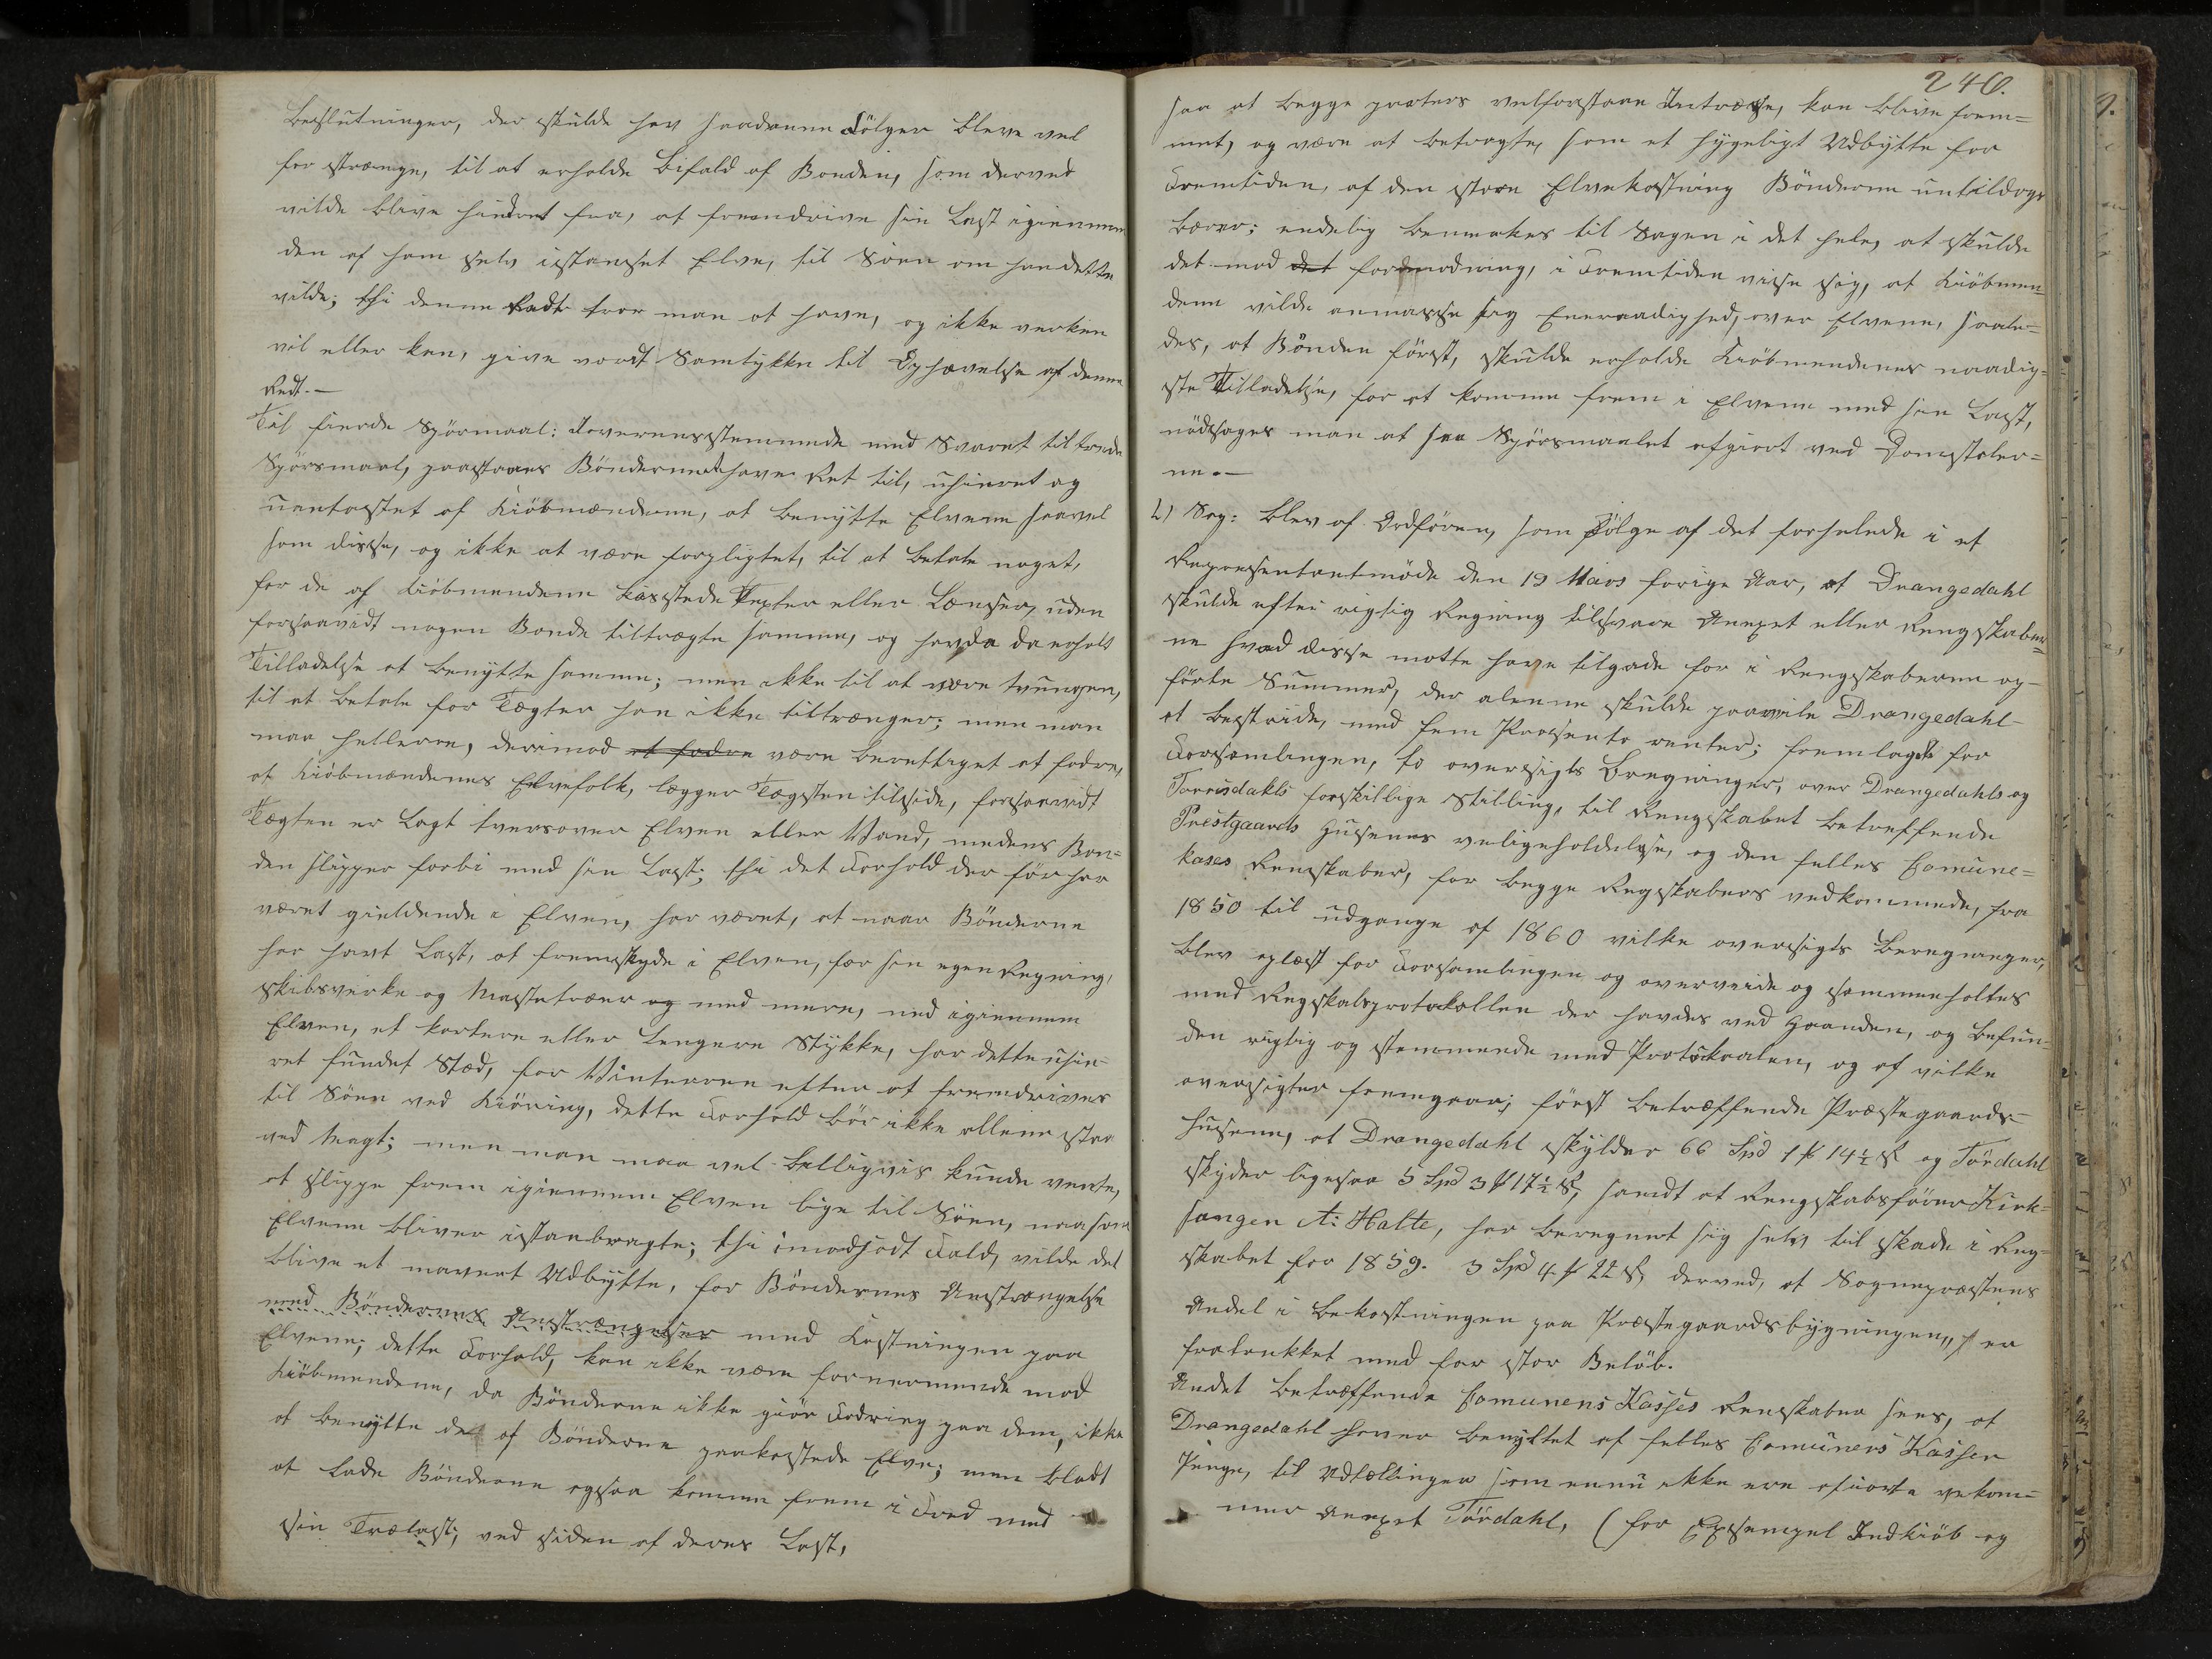 Beslutninger, der skulde hav saadanne Fölger bleve vel
for strænge, til at erholde Bifald af Bonden, som derved
vilde blive hindret fra, at fremdrive sin Last igiennem
den af ham selv istanset Elve, til Söen om han dette
vilde; thi denne Redt tror man at have, og ikke verken
vil eller kan, give vordt Samtykke til Ophævelse af denne
Redt.—
Til fierde Spörmaal: Iovernensstemmende med Svaret til tredie
Spörsmaal, paastaaes Bönderne at have Ret til, uhinret og
uantastet af Kiöbmændene, at benytte Elvene saavel
som disse, og ikke at være forpligtet, til at betale noget,
for de af Kiöbmendene kostede Tegter eller Lænser, uden
forsaavidt nogen Bonde tiltrægte samme, og havde da erholt
Tilladelse at benytte samme; men ikke til at være tvungen,
til at betale for Tægter han ikke tiltrænger; men man
maa hellere, derimod at fodre være berettiget at fodre,
at Kiöbmændenes Elvefolk, lægger Tægten tilside, forsaavidt
Tægten er Lagt tversover Elven eller Vand, medens Bon=
den slipper forbi med sin Last; thi det Forhold der för har
været gieldende i Elven, har været, at naar Bönderne
har havt Last, at fremskyde i Elven, for sin egen Regning,
skibsvirke og Mastetræer og med mere, ned igiennem
Elven, et kortere eller Lengere Stykke, har dette uhin=
ret fundet Stad, for Vinteren efter at fremdrives
til Söen ved Kiöring, dette Forhold bör ikke allene staa
ved Magt; men man maa vel billigvis kunde vente,
at slippe frem igiennem Elven lige til Söen, naar som
Elvene bliver istanbragte; thi imodsadt Fald, vilde det
blive et mavert Udbytte, for Böndernes Anstrængelse
med Böndernes Anstrængelser med Kostningen paa
Elvene; dette Forhold, kan ikke være fornermende mod
Kiöbmendene, da Bönderne ikke giör Fodring paa dem, ikke
at benytte de af Bönderne paakostede Elve; men blodt
at Lade Bönderne ogsaa komme frem i Fred med
sin Trælast; ved siden af deres Last,
240.
saa at begge parters velforstaaede Intræsse, kan blive frem=
met, og være at betragte, som et hygeligt Udbytte for
Fremtiden, af den store Elvekostning Bönderne
bærer; endelig bemærkes til Sagen i det hele, at skulde
det mod det formodning, i Fremtiden vise sig, at Kiöbmen=
dene vilde anmasse sig Eneraadighed, over Elvene, saale=
des, at Bönden först, skulde erholde Kiöbmendenes naadig=
ste Tilladelse, for at komme frem i Elvene med sin Last,
nödsages man at faa Spörsmaalet afgiort ved Domstoler=
ne.—
2) Sag: Blev af Ordfören, som Fölge af det forhelede i et
Representantmöde den 19 Mars forige Aar, at Drangedahl
skulde efter rigtig Regning tilsvare Anexet eller Rengskaber=
ne hvad disse motte have tilgode for i Rengskaberne op=
förte Summer, der alenne skulde paavile Drangedahl
at bestride, med fem Prosento renter; fremlagdt for
Forsamlingen, to oversigts Bregninger, over Drangedahls og
Torrisdahls forskillige Stilling, til Rengskabet betreffende
Prestgaards Husenes veligeholdelse, og den felles Comune=
kases Renskaber, for begge Regskabers vedkommende, fra
1850 til udgange af 1860 vilke oversigts Beregninger,
blev oplæst for Forsamlingen og overveiede og sammenholtes
med Regskabsprotokollen der havdes ved Haanden, og befun=
den rigtig og stemmende med Protokolen, og af vilke
oversigter fremgaar; först betræffende Præstegaards=
husene, at Drangedahl skylder 66 Spd 1 # 14½ s. og Tördahl
skyder ligesaa 5 Spd 3 # 17½ s, samdt at Rengskabsförer Kirk=
sangen A: Halte, har beregnet sig selv til skade i Reg=
skabet for 1859. 3 Spd 4 # 22 s, derved, at Sogneprestens
Andel i bekostningen paa Præstegaardsbygningen, er
fratrukket med for stor Belöb.
Andet betræffende Comunens Kasses Renskaber sees, at
Drangedahl haver benyttet af felles Comunens Kassen
Penge, til Udtællinger som ennu ikke ere vekom=
mer Anexet Tördahl, (for Exsempel Indkiöb og